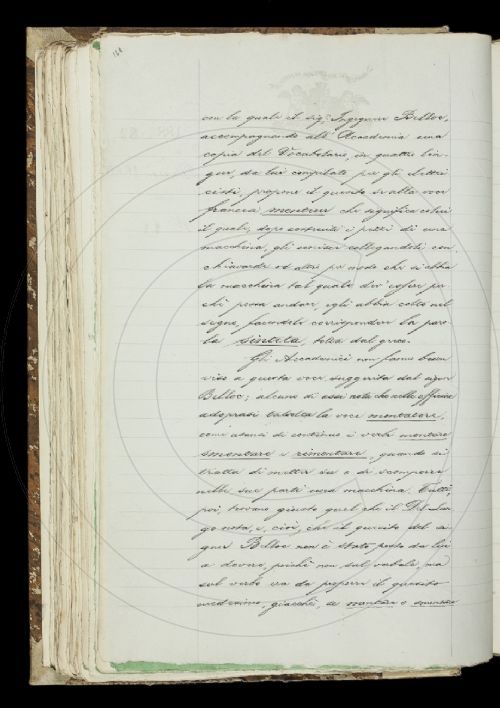 164
con la quale il sig. Ingegner Belloc,
accompagnando all'Accademia una
copia del Vocabolario, in quattro lin-
gue, da lui compilato per gli elettri-
cisti, propone il quesito se alla voce
francese monteur che significa colui
il quale, dopo costruiti i pezzi di una
macchina, gli unisce collegandoli con
chiavarde od altro per modo che si abbia
la macchina tal quale dev'esser per-
chè possa andare, egli abbia colto nel
segno, facendole corrispondere la paro-
la sinteta, tolta dal greco.
Gli Accademici non fanno buon
viso a questa voce suggerita dal signor
Belloc; alcuno di essi nota che nelle officine
adoprasi talvolta la voce montatore,
come usansi di continuo i verbi montare
smontare e rimontare, quando si
tratta di metter su o di scomporre
nelle sue parti una macchina. Tutti,
poi, trovano giusto quel che il Del Lun-
go nota, e, cioè, che il quesito del si-
gnor Belloc non è stato posto da lui
a dovere, poichè non sul verbale, ma
sul verbo era da proporre il quesito
medesimo, giacchè, se montare e smontare